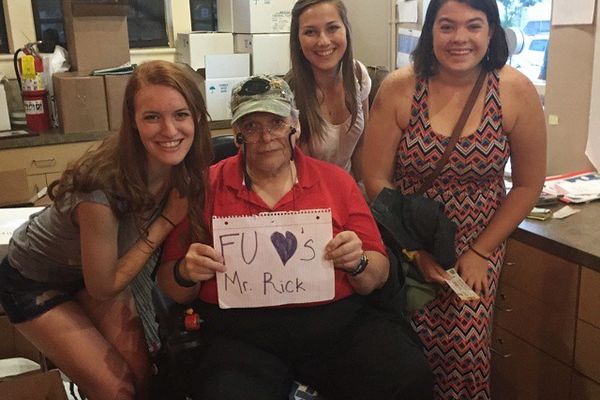 FU ♥'s
Mr. Rick